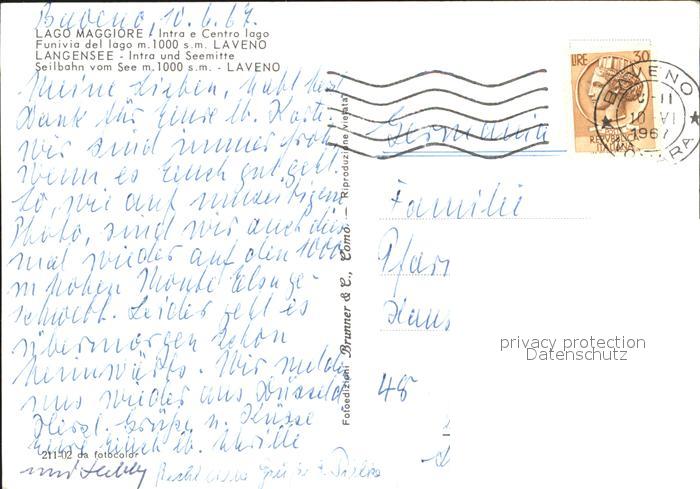 Baveno, 10.6.67.
LAGO MAGGIORE - Intra e Centro lago
Funivia del lago m.1000 s.m. LAVENO
LANGENSEE - Intra und Seemitte
Seilbahn vom See m.1000 s.m. - LAVENO
Meine Lieben, habt herzl.
Dank für Eure lb. Karte.
Wir sind immer froh
wenn es Euch gut geht.
So, wie auf umseitigem
Photo, sind wir auch dies
mal wieder auf den 1000
m hohen Monte
schwebt. Leider geht es
übermorgen schon
heimwärts. Wir melden
uns wieder aus Düsseldorf
Herzl. Grüße u. Küsse
Eure Euch lb.
und
211-02 da fotocolor
Fotoedizioni Brunner & C., Como. — Riproduzione vietata
LIRE 30
REPUBBLICA
ITALIANA
BAVENO
-11
10 VI
1967
NOVARA
Germania
Familie
Pfarr
Haus
48
privacy protection
Datenschutz